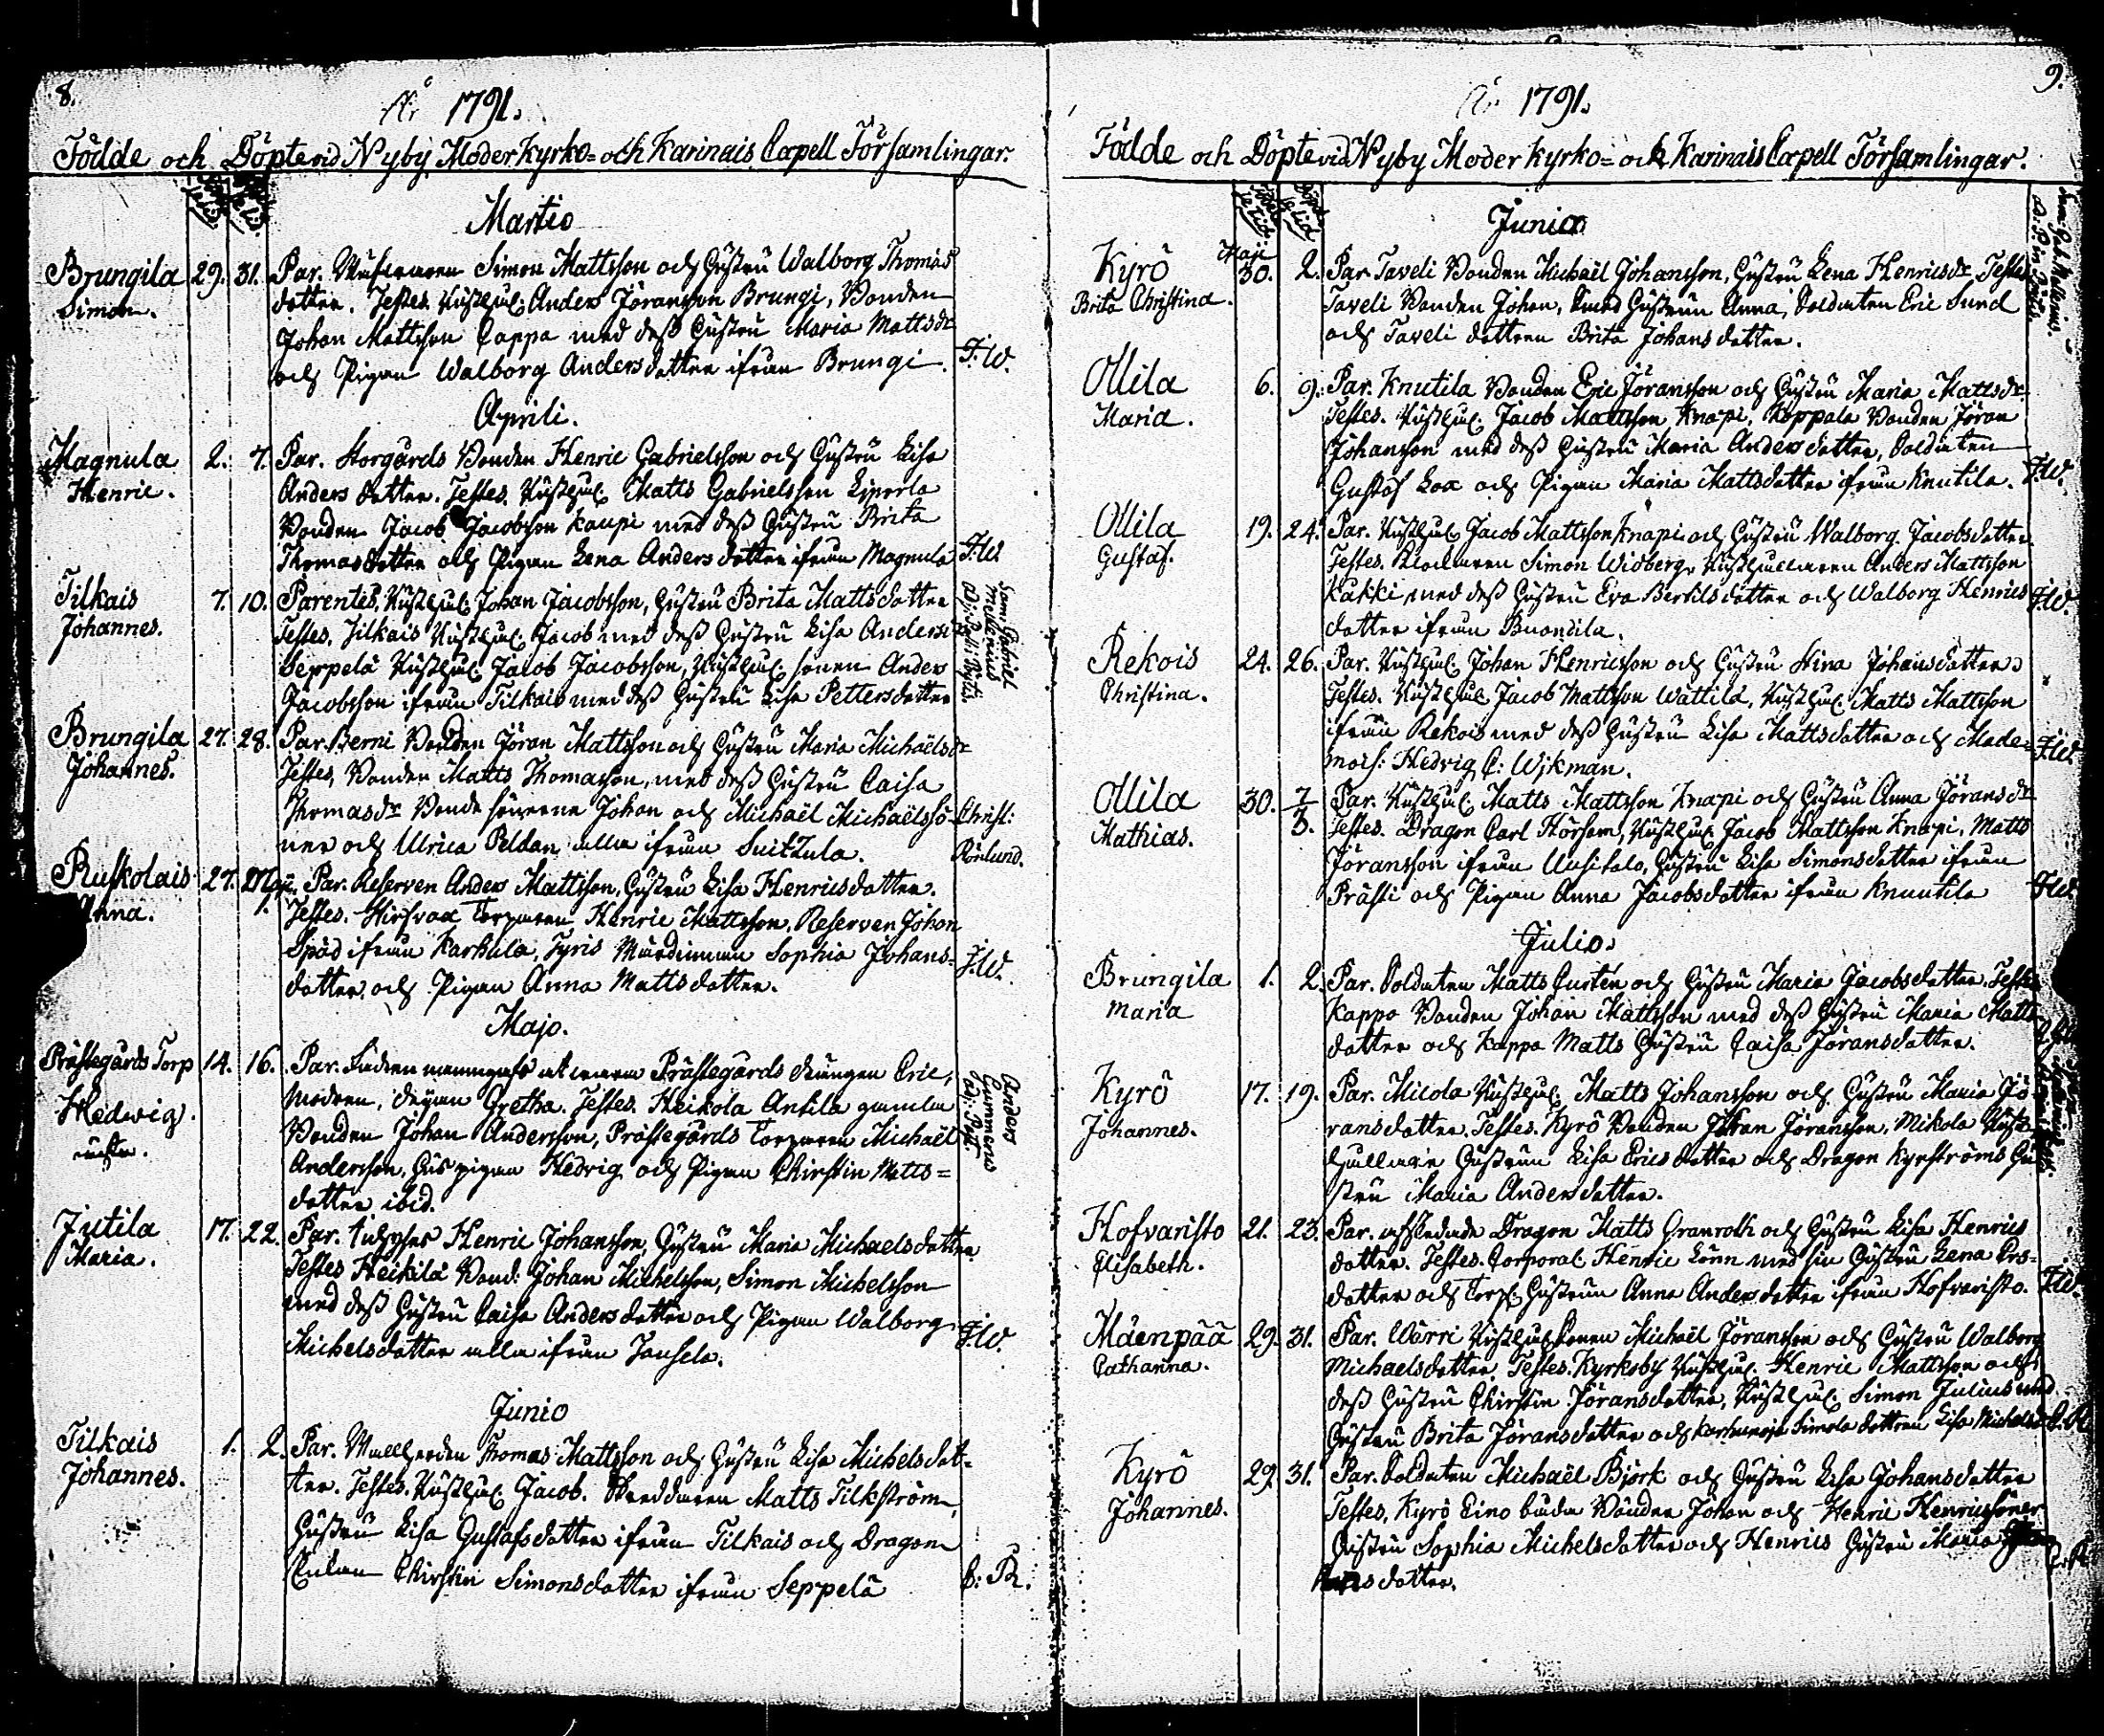 8.
År 1791.
Födde och Döpte vid Nyby Moder Kyrko- och Karinais Capell Församlingar.
Martio
Brungila 29. 31. Par. Simon Mattsson och Hustru Walborg Thomas
Simon. dotter. Testes. Anders Jöransson Brungi, Bonden
Johan Mattsson Cappa med dess Hustru Maria Mattsdr
och Pigan Walborg Andersdotter ifrån Brungi. J.W.
Aprili.
Magnula 2. 7. Par. Storgårds Bonden Henric Gabrielsson och Hustru Lisa
Henric. Anders dotter. Testes. Matts Gabrielsson
Bonden Jacob Jacobsson Kaupi med dess Hustru Brita
Thomasdotter och Pigan Lena Anders dotter ifrån Magnula J.W.
Tilkais 7. 10. Parentes, Johan Jacobsson, Hustru Brita Mattsdotter
Johannes. Testes. Tilkais Jacob med dess Hustru Lisa Anders
Seppelä Jacob Jacobsson, sonen Anders
Jacobsson ifrån Tilkais med dess Hustru Lisa Pettersdotter
Brungila 27. 28. Par. Berni Bonden Jöran Mattsson och Hustru Maria Michaëlsdr
Johannes. Testes, Bonden Matts Thomasson, med dess Hustru Caisa
Thomasdr Bonde sönerne Johan och Michaël Michaëlssö- Christ:
ner och Ulrica Peldan alla ifrån Suitzula. Rönlund.
Ruskolais 27. Maji Par. Reserven Anders Mattsson, Hustru Lisa Henricsdotter.
Anna. 1. Testes. Torparen Henric Mattsson, Reserven Johan
Späd ifrån Karhula, Tyris Sophia Johans-
dotter och Pigan Anna Mattsdotter. J.W.
Majo.
Prästegårds Torp 14. 16. Par. Prästegårds drängen Eric,
Hedwig. modren, Gretha. Testes. Heikola Antila gamla
Bonden Johan Andersson, Prästegårds Torparen Michaël
Andersson, Hus pigan Hedvig och Pigan Chirstin Matts-
dotter ibid.
Jutila 17. 22. Par. Henric Johansson, Hustru Maria Michaelsdotter
Maria. Testes Heikilä Bond: Johan Michelsson, Simon Michelsson
med dess Hustru Caisa Andersdotter och Pigan Walborg
Michelsdotter alla ifrån J.W.
Junio
Tilkais 1. 2. Par. Thomas Mattsson och Hustru Lisa Michelsdot-
Johannes. ter. Testes. Jacob. Matts Tilkström,
Hustru Lisa Gustafsdotter ifrån Tilkais och Dragon
Enkan Chirstin Simonsdotter ifrån Seppelä C: R.
9.
År 1791.
Födde och Döpte vid Nyby Moder kyrko- och Karinais Capell Församlingar.
Junio
Kyrö Maji 30. 2. Par Taveli Bonden Michaël Johansson, Hustru Lena Henricsdr Testes
Brita Christina. Taveli Bonden Johan, med Hustrun Anna, Soldaten Eric Sund
och Taveli dottern Brita Johans dotter.
Ollila 6. 9. Par. Knutila Bonden Eric Jöransson och Hustru Maria Mattsdr
Maria. Testes. Jacob Mattsson Knapi, Koppala Bonden Jöran
Johansson med dess Hustru Maria Anders dotter, Soldaten
Gustaf och Pigan Maria Mattsdotter ifrån Knutila. J.W.
Ollila 19. 24. Par. Jacob Mattsson Knapi och Hustru Walborg Jacobsdotter
Gustaf. Testes. Klockaren Simon Widberg, Anders Mattsson
Kakki med dess Hustru Eva Bertilsdotter och Walborg Henrics J.W.
dotter ifrån
Rekois 24. 26. Par. Johan Henricsson och Hustru Stina Johansdotter
Christina. Testes. Jacob Mattsson Wattila, Matts Mattsson
ifrån Rekois med dess Hustru Lisa Mattsdotter och Made-
mois: Hedvig C: Wikman. J.W.
Ollila 30. 7/3. Par. Matts Mattsson Knapi och Hustru Anna Jöransdr
Mathias. Testes. Dragon Carl Hörsam, Jacob Mattsson Knapi, Matts
Jöransson ifrån Uusitalo, Hustru Lisa Simonsdotter ifrån
Prästi och Pigan Anna Jacobsdotter ifrån Knuutila J.W.
Julio
Brungila 1. 2. Par. Soldaten Matts Curtén och Hustru Maria Jacobsdotter. Testes
Maria Kappa Bonden Johan Mattsson med dess Hustru Maria Matts
dotter och Kappa Matts Hustru Caisa Jöransdotter.
Kyrö 17. 19. Par. Micola Matts Johansson och Hustru Maria Jö-
Johannes. ransdotter. Testes. Kyrö Bonden Jöran Jöransson, Mikola
Hustrun Lisa Ericsdotter och Dragon Kyrströms Hu
stru Maria Andersdotter.
Hofvaristo 21. 23. Par. afskedade Dragon Matts Granroth och Hustru Lisa Henrics
Elisabeth. dotter. Testes. Corporal Henric Lönn med sin Hustru Lena Ers-
dotter och Torp: Hustrun Anna Andersdotter ifrån Hofvaristo. J.W.
Mäenpää 29. 31. Par. Wärri sonen Michaël Jöransson och Hustru Walborg
Catharina. Michaelsdotter, Testes. Kyrkoby Henric Mattsson och
dess Hustru Chirstin Jöransdotter, Simon Julius med
Hustru Brita Jöransdotter och dottren Lisa Michelsdr C.R.
Kyrö 29. 31. Par. Soldaten Michaël Björk och Hustru Lisa Johansdotter
Johannes. Testes, Kyrö Eino båda Bönder Johan och Henric Henricssöner
Hustru Sophia Michelsdotter och Henrics Hustru Maria
dotter.